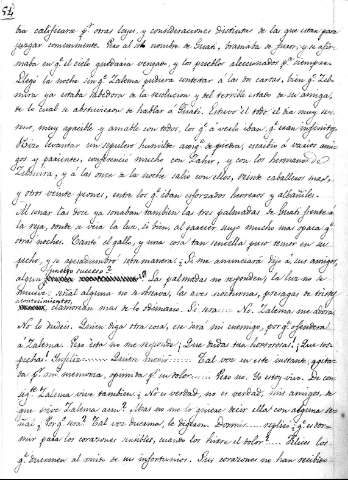 54,
tra calificara qᵉ otras leyes, y consideraciones distintas de las que estan para
juzgar comunmente. Pero al solo nombre de Gazul, bramaba de furor, y se afir-
maba en qᵉ el cielo quedaria vengado, y los pueblos
Elegí la noche sin qᵉ Zalema pudiera contestar á las dos cartas, bien qᵉ Zel-
mira ya estaba sabedora de la resolucion y del terrible estado de su amiga,
de lo cual se abstuvieron de hablar á Estuvo el todo el dia muy sere-
no, muy apacible y amable con todos, los qᵉ á verlo iban, qᵉ eran infinitos.
Hizo levantar un sepulcro humilde escribió á varios ami-
gos y parientes, conferenció mucho con Zahir, y con los hermanos de
Zelmira, y á las once de la noche salió con ellos, veinte caballeros mas,
y otros veinte peones, entre los qᵉ iban esforzados herreros y albañiles.
Al sonar las doce ya sonaban tambien las tres palmadas de frente á
la reja, donde se veia la luz, si bien al parecer muy mucho mas opaca qᵉ
otras noches. Cantó el gallo, y una cosa tan sencilla puso temor en su
pecho, y lo de otra manera: ¿Si me anunciará dijo á sus amigos,
algun funesto suceso? Las palmadas no responden, la luz no se
mueve, señal alguna no se observa, las aves nocturnas, presagas de tristes
acontecimientos, claman mas de lo ordinario. Si será...... No: Zalema me adora.
No lo dudeis. Quien diga otra cosa, ese será mi enemigo, por qᵉ ofenderá
á Zalema. Pero ésta no me responde: ¡Que dudas tan horrorosas! ¡Que sos-
pechas! ¡Infeliz...... Quien Tal vez en este instante, agita-
da pʳ mi memoria, gemirá pʳ su dolor..... Pero no. Yo estoy vivo. De con-
sigᵗᵉ Zalema vive tambien: ¿No es verdad, no es verdad, mis amigos, de
que vive Zalema aun? Mas no me lo quiere decir ella con alguna se-
ñal: ¿Por qᵉ será? Tal vez duerma, le digeron. Dormir..... replicó: ¿qᵉ es dor-
mir para los corazones sensibles, cuando los hiere el dolor? Felices los
qᵉ duermen al ruido de sus infortunios. Sus corazones no han recibido